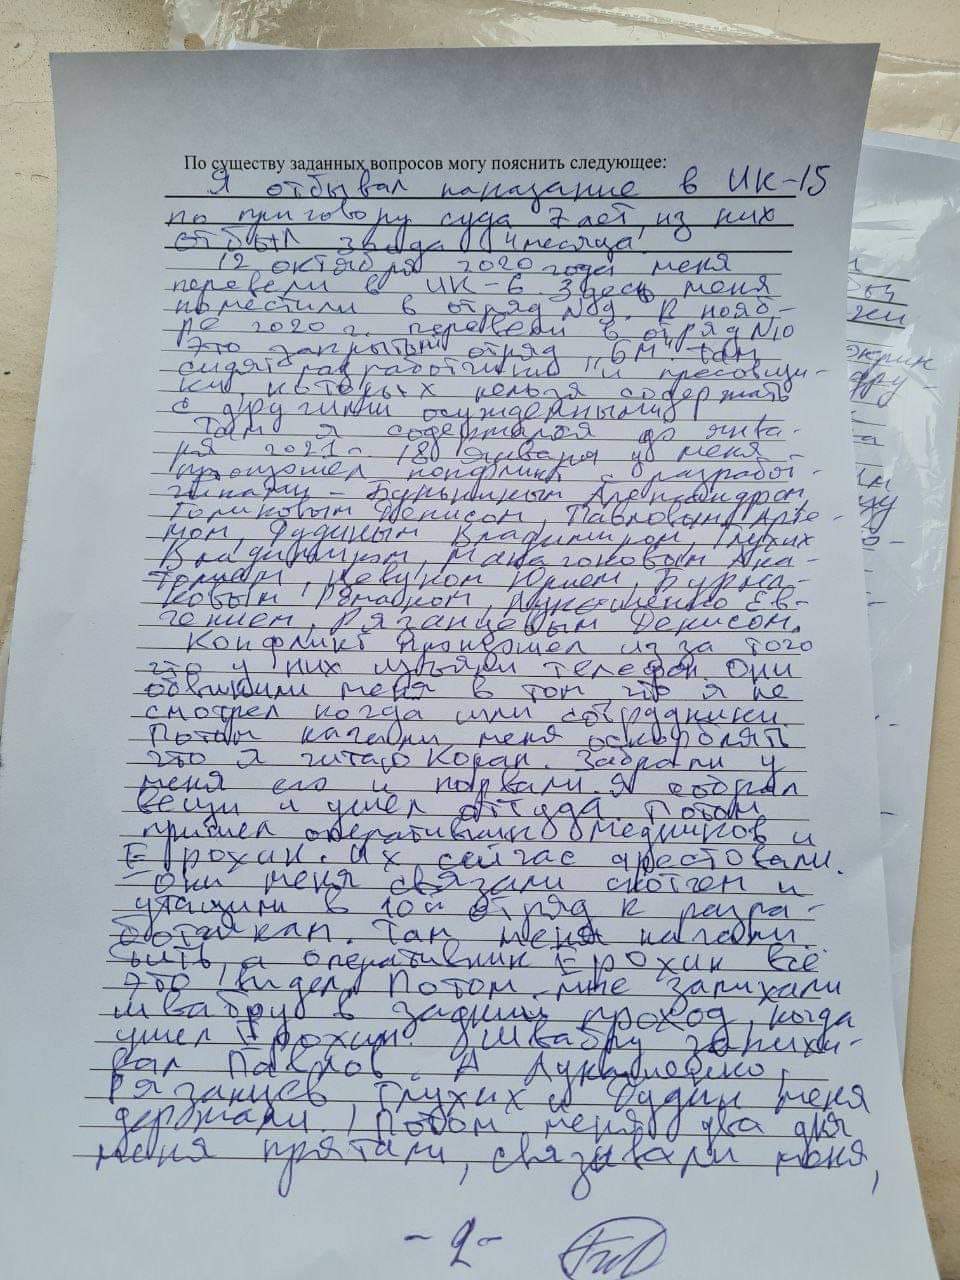 По существу заданных вопросов могу пояснить следующее:
Я отбывал наказание в ИК-15
по приговору суда 7 лет, из них
отбыл 3 года 4 месяца.
12 октября 2020 года меня
перевели в ИК-6. Здесь меня
поместили в отряд №9. В нояб-
ре 2020 г. перевели в отряд №10
Это закрытый отряд "БМ" там
сидят разработчики и пресовщи-
ки, которых нельзя содержать
с другими осужденными.
Там я содержался до янва-
ря 2021. 18 января у меня
произошел конфликт с разработ-
чиками - Александром,
Голиковым Денисом, Павловым Арте-
мом, Дудиным Владимиром, Глухих
Владимиром, Ана-
толием, Юрием, Бурна-
ковым Романом, Лукашенко Ев-
гением, Рязанцевым Денисом.
Конфликт произошел из за того
что у них изъяли телефон. Они
обвинили меня в том что я не
смотрел когда шли сотрудники.
Потом начали меня оскорблять
что я читаю Коран. Забрали у
меня его и порвали. Я собрал
вещи и ушел оттуда. Потом
пришел оперативник Медников и
Ерохин. Их сейчас арестовали.
Они меня связали скотчем и
утащили в 10й отряд к разра-
боткам. Там меня начали
бить, а оперативник Ерохин всё
это видел. Потом мне запихали
швабру в задний проход, когда
ушел Ерохин. Швабру запихи-
вал Павлов. А Лукашенко,
Рязанцев, Глухих и Дудин меня
держали. Потом меня два дня
меня прятали, связывали меня,
- 2 -